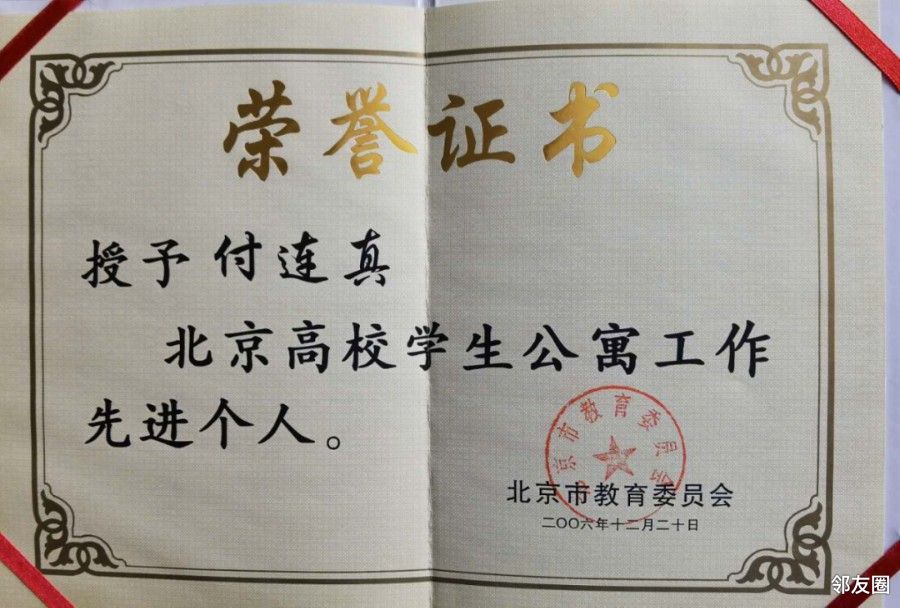 荣誉证书
授予付连真
北京高校学生公寓工作
先进个人。
北京市教育委员会
北京市教育委员会
二〇〇六年十二月二十日
邻友圈